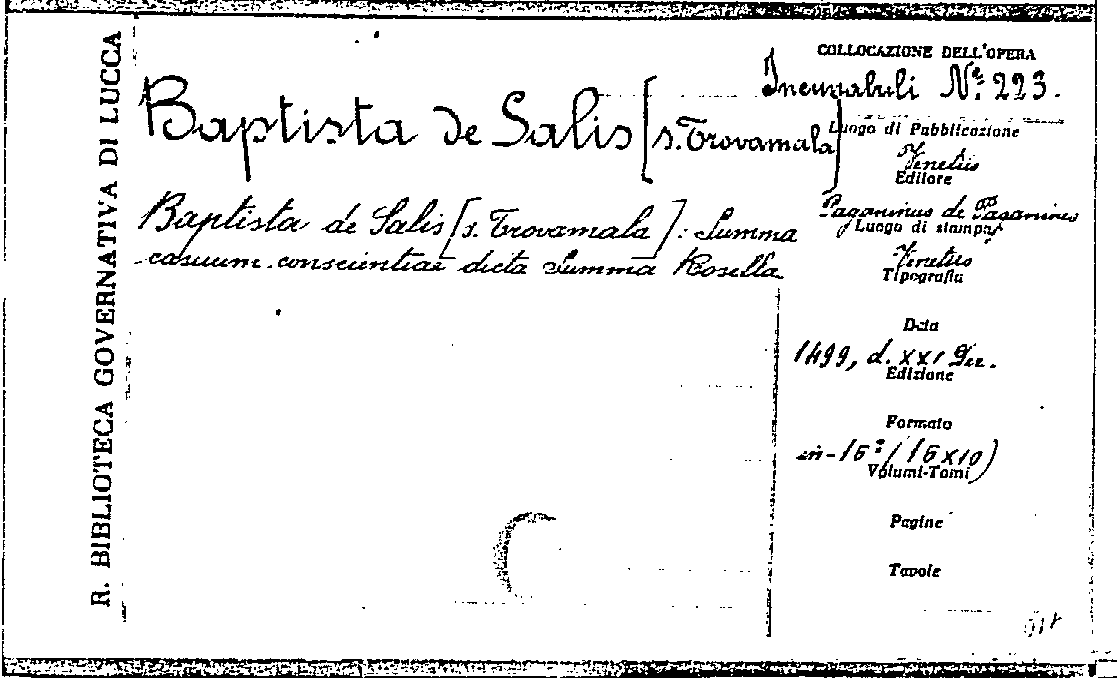 R. BIBLIOTECA GOVERNATIVA DI LUCCA
Baptista de Salis [s. Trovamala]
Baptista de Salis [s. Trovamala]: Summa
casuum conscientiae dicta Summa Rosella
COLLOCAZIONE DELL'OPERA
Incunabuli Nº 223.
Luogo di Pubblicazione
Venetiis
Editore
Paganinus de Paganinis
Luogo di stampa
Venetiis
Tipografia
Data
1499, d. XXI Dec.
Edizione
Formato
in-16º (16x10)
Volumi-Tomi
Pagine
Tavole